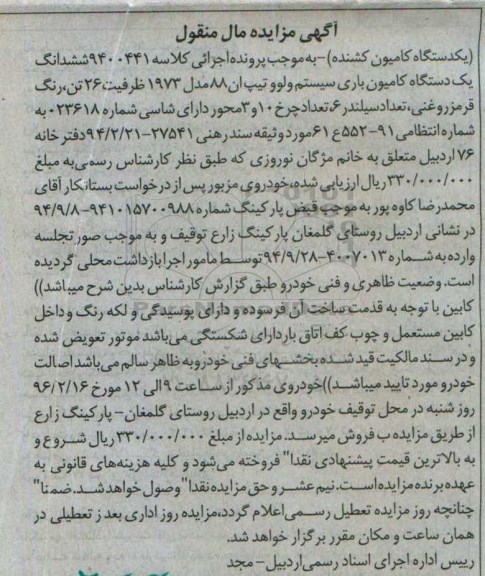 آگهی مزایده مال منقول
(یکدستگاه کامیون کشنده)-به موجب پرونده اجرائی کلاسه ۹۴۰۰۴۴۱ ششدانگ
یک دستگاه کامیون باری سیستم ولوو تیپ ان۸۸ مدل ۱۹۷۳ ظرفیت ۲۶ تن، رنگ
قرمز روغنی، تعداد سیلندر ۶، تعداد چرخ ۱۰ و ۳ محور دارای شاسی شماره ۰۲۳۶۱۸ به
شماره انتظامی ۹۱-۵۵۲ع۶۱ مورد وثیقه سند رهنی ۲۷۵۴۱-۹۴/۲/۲۱ دفتر خانه
۷۶ اردبیل متعلق به خانم مژگان نوروزی که طبق نظر کارشناس رسمی به مبلغ
۳۳۰/۰۰۰/۰۰۰ ریال ارزیابی شده، خودروی مزبور پس از درخواست بستانکار آقای
محمدرضا کاوه پور به موجب قبض پارکینگ شماره ۹۴۱۰۱۵۷۰۰۹۸۸-۹۴/۹/۸
در نشانی اردبیل روستای گلمغان پارکینگ زارع توقیف و به موجب صورتجلسه
وارده به شماره ۴۰۰۷۰۱۳-۹۴/۹/۲۸ توسط مامور اجرا بازداشت محلی گردیده
است. وضعیت ظاهری و فنی خودرو طبق گزارش کارشناس بدین شرح میباشد))
کابین با توجه به قدمت ساخت آن فرسوده و دارای پوسیدگی و لکه رنگ و داخل
کابین مستعمل و چوب کف اتاق بار دارای شکستگی می‌باشد موتور تعویض شده
و در سند مالکیت قید شده بخشهای فنی خودرو به ظاهر سالم می‌باشد اصالت
خودرو مورد تایید میباشد))خودروی مذکور از ساعت ۹ الی ۱۲ مورخ ۹۶/۲/۱۶
روز شنبه در محل توقیف خودرو واقع در اردبیل روستای گلمغان - پارکینگ زارع
از طریق مزایده ب فروش میرسد. مزایده از مبلغ ۳۳۰/۰۰۰/۰۰۰ ریال شروع و
به بالاترین قیمت پیشنهادی نقدا" فروخته می‌شود و کلیه هزینه‌های قانونی به
عهده برنده مزایده است. نیم عشر و حق مزایده نقدا" وصول خواهد شد. ضمنا"
چنانچه روز مزایده تعطیل رسمی اعلام گردد، مزایده روز اداری بعد ز تعطیلی در
همان ساعت و مکان مقرر برگزار خواهد شد.
رییس اداره اجرای اسناد رسمی اردبیل - مجد